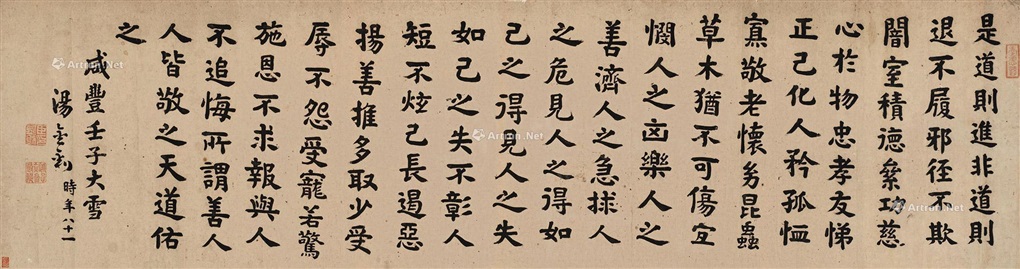 是道則進非道則
退不履邪径不欺
闇室積德絫功慈
心於物忠孝友悌
正己化人矜孤恤
寡敬老懷㓜昆蟲
草木猶不可傷宜
憫人之凶樂人之
善濟人之急捄人
之危見人之得如
己之得見人之失
如己之失不彰人
短不炫己長遏惡
揚善推多取少受
辱不怨受寵若驚
施恩不求報與人
不追悔所謂善人
人皆敬之天道佑
之
咸豐壬子大雪
湯金釗時年八十一
Artron.Net
Artron.Net
Artron.Net
Artron.Net